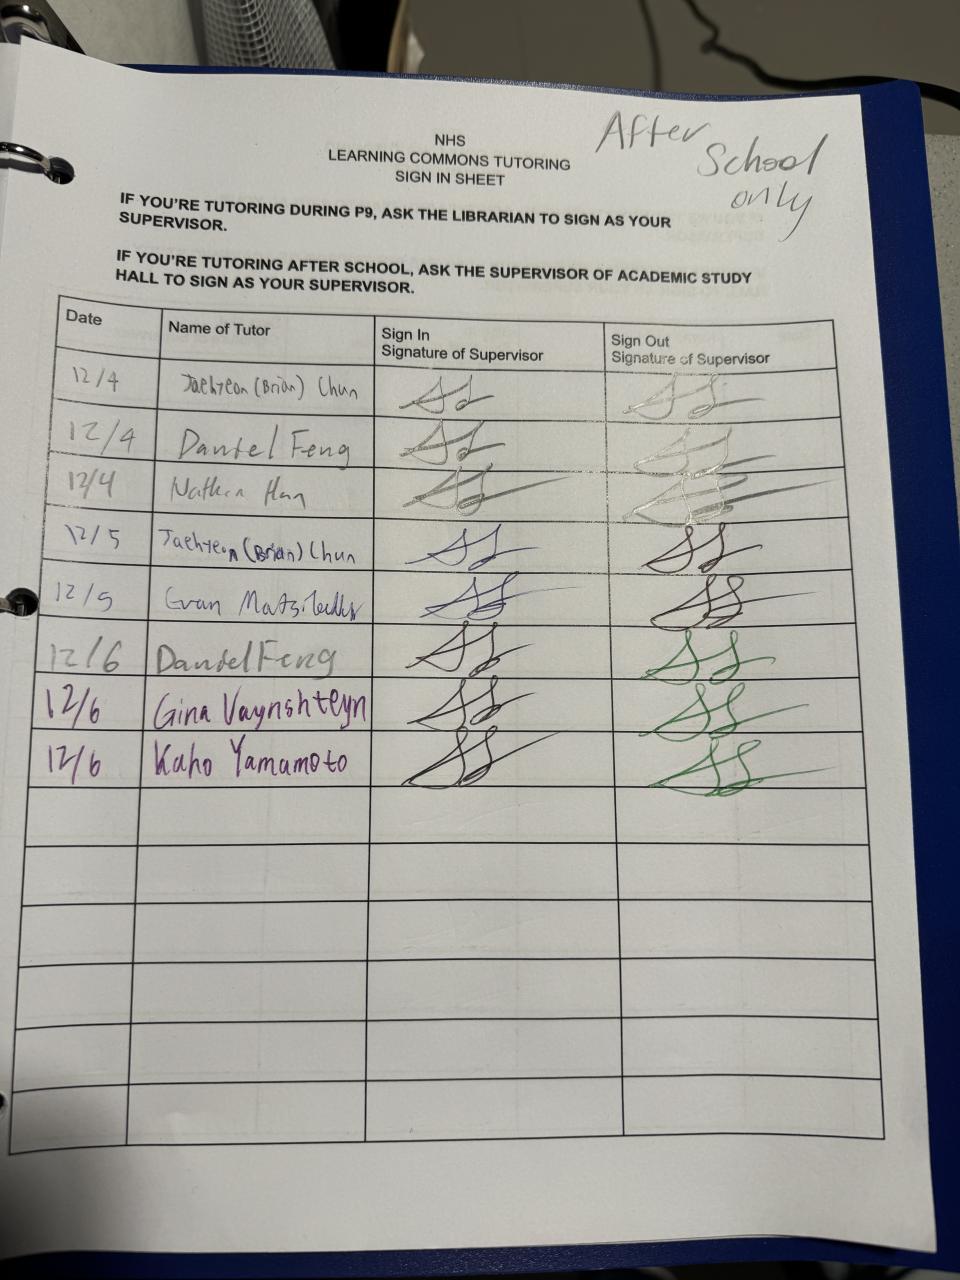 After
School
only
NHS
LEARNING COMMONS TUTORING
SIGN IN SHEET
IF YOU'RE TUTORING DURING P9, ASK THE LIBRARIAN TO SIGN AS YOUR
SUPERVISOR.
IF YOU'RE TUTORING AFTER SCHOOL, ASK THE SUPERVISOR OF ACADEMIC STUDY
HALL TO SIGN AS YOUR SUPERVISOR.
Date Name of Tutor Sign In Sign Out
Signature of Supervisor Signature of Supervisor
12/4 Jaehyeon (Brian) Chun
12/4 Daniel Feng
12/4 Nathan Han
12/5 Jaehyeon (Brian) Chun
12/5 Evan
12/6 Daniel Feng
12/6 Gina Vaynshteyn
12/6 Kaho Yamamoto